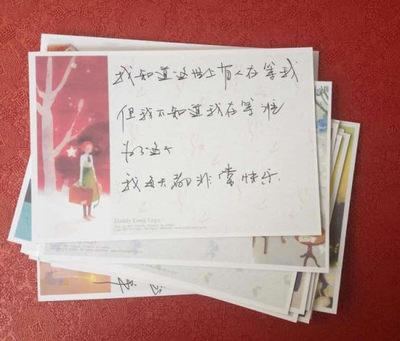 我知道这世上有人在等我
但我不知道我在等谁
为了这个
我每天都非常快乐
Daddy Long Legs